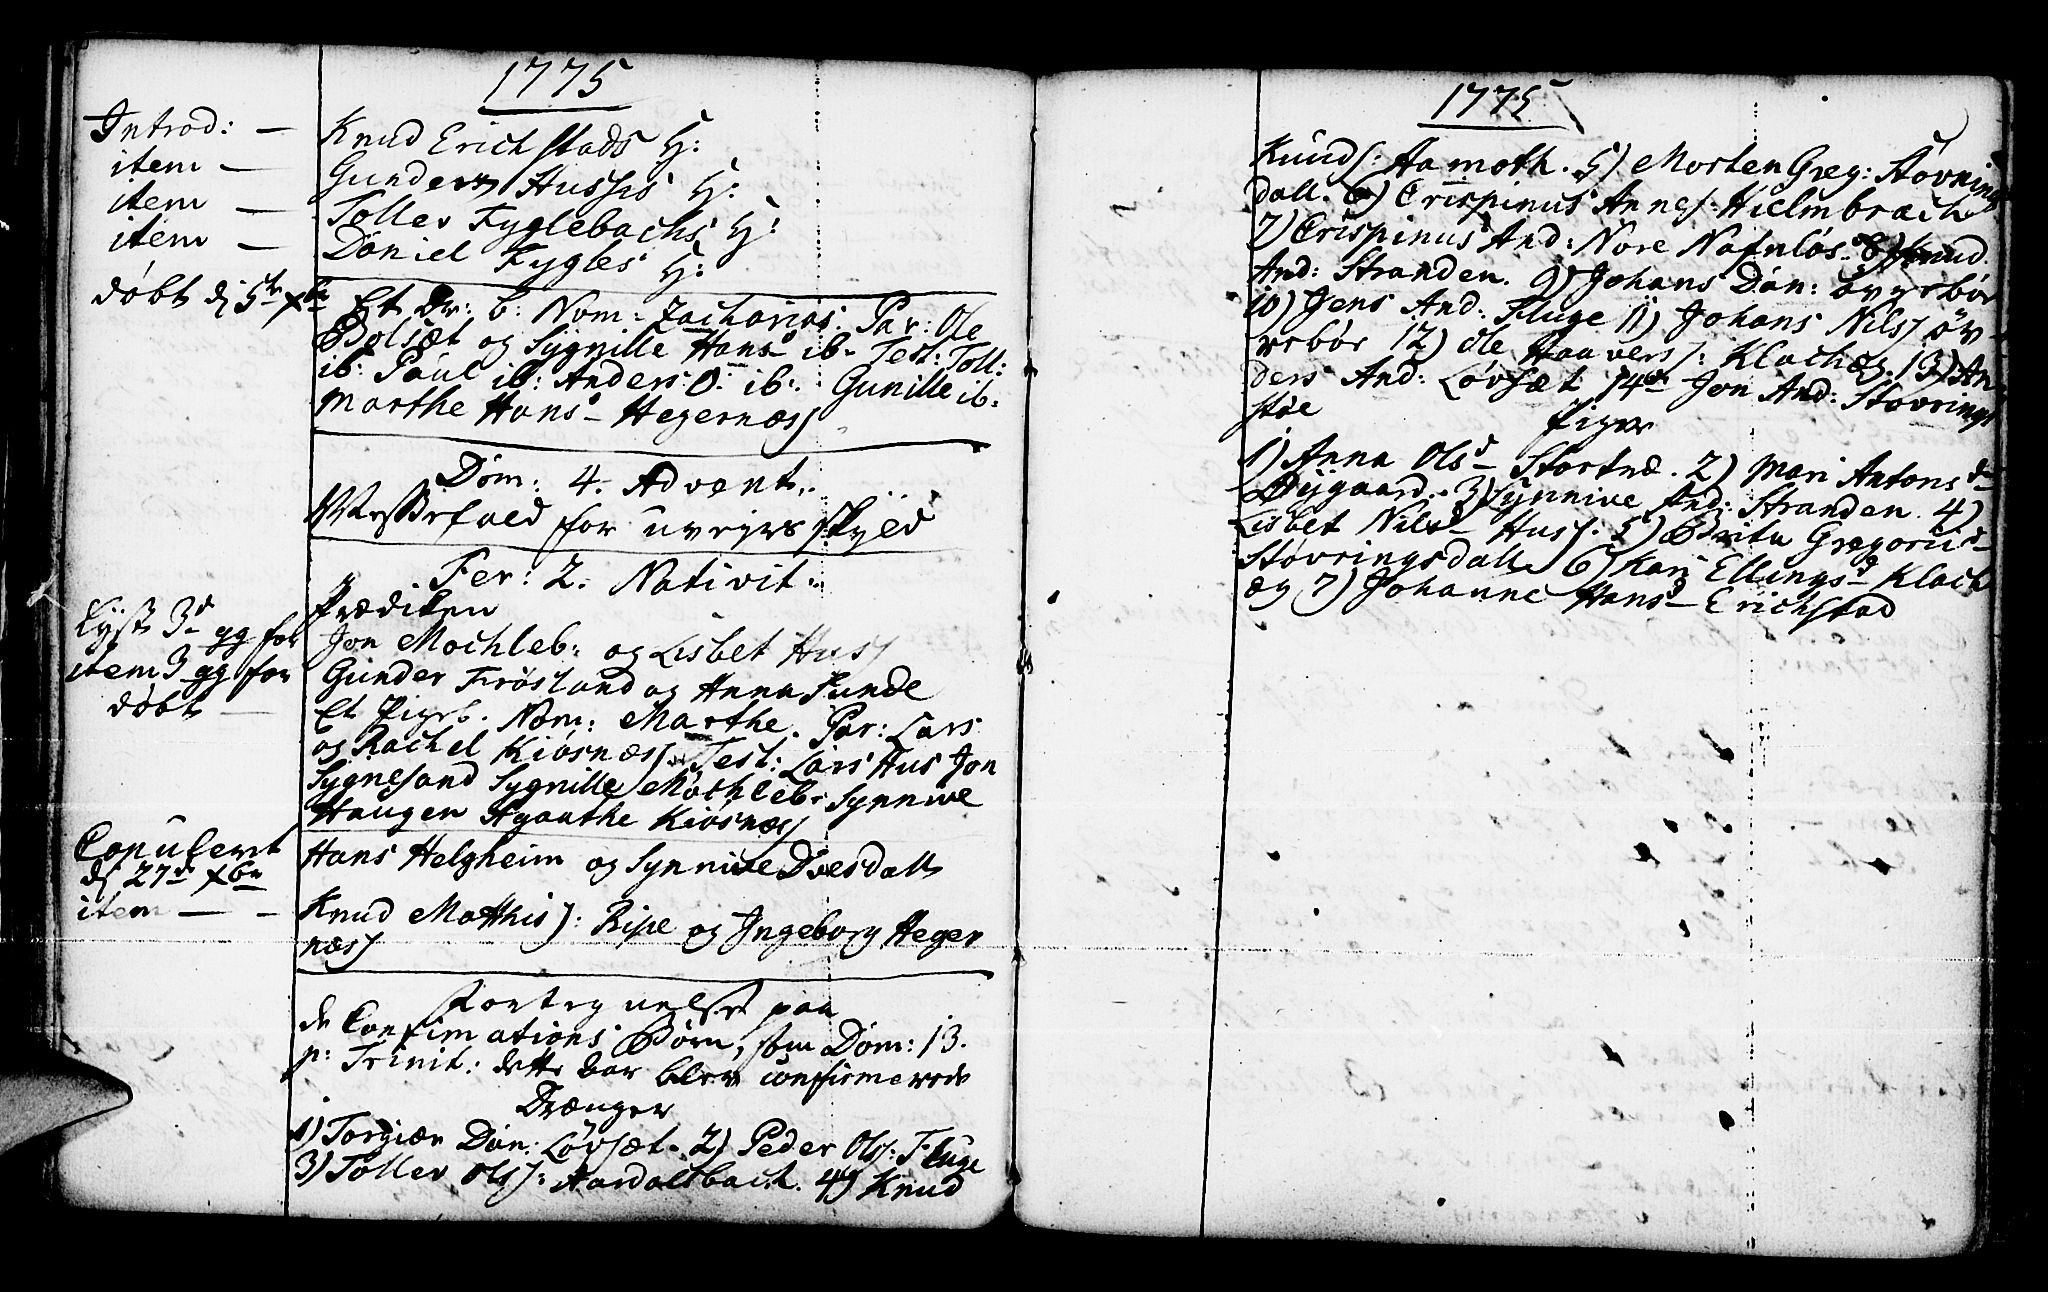 1775
Introd: — Knud Erichstads H:
item — Gunders Husses H:
item — Tolles Fyglebachs H:
item — Daniel Fygles H:
døbt d 5te xbr Et Dr: b: Nom: Zacharias. Par: Ole
Bolsæt og Sygnille Hansd ib. Test: Toll:
ib: Paul ib: Anders O: ib: Gunille ib:
Marthe Hansd Hegernæss
Dom: 4. Advent.
Messefald for uveyrs skyld
Fer: 2. Nativit.
Prædiken
Lyst 3d gg for Jon Mochleb: og Lisbet Huss
item 3 gg for Gunder Frøsland og Anna Sunde
døbt — Et Pigeb. Nom: Marthe. Par: Lars
og Rachel Kiøsnæss. Test: Lars Hus Jon
Sygnesand Sygnille Mochleb: Synnive
Haugen Agaathe Kiøsnæss
Copuleret Hans Helgheim og Synnive Dvesdall
d 27d xbr
item — Knud Matthis: Ripe og Ingeborg Heger
næss
Fortegnelse paa
de Confirmations Børn, som Dom: 13.
p: Trinit: dette Aar blev confirmerede
Drænger
1) Torgiær Dan: Løvsæt. 2) Peder Ols: Fluge
3) Tolles Ols: Aardalsbach. 4) Knud
1775
Knuds: Aamoth. 5) Morten Greg: Støvrings
dall. 6) Crispinus Annes: Hielmbrech
7) Crispinus And: Nore Nafnløs. 8) Knud
And: Stranden. 9) Johans Dan: øvrebøe
10) Jens And: Fluge 11) Johans Nils: øv
rebøe 12) Ole Haavers: Klacheg. 13) An
ders And: Løvsæt 14de Jon And: Støvrings
støe
Piger
1) Anna Olsd Stortræ. 2) Mari Antonsd
Dyrgaard. 3) Synnive And: Stranden. 4)
Lisbet Nilsd Huss. 5) Brita Gregoriid
Støvringsdall 6) Kari Ellingsd Klach
eg 7) Johanne Hansd Erichstad